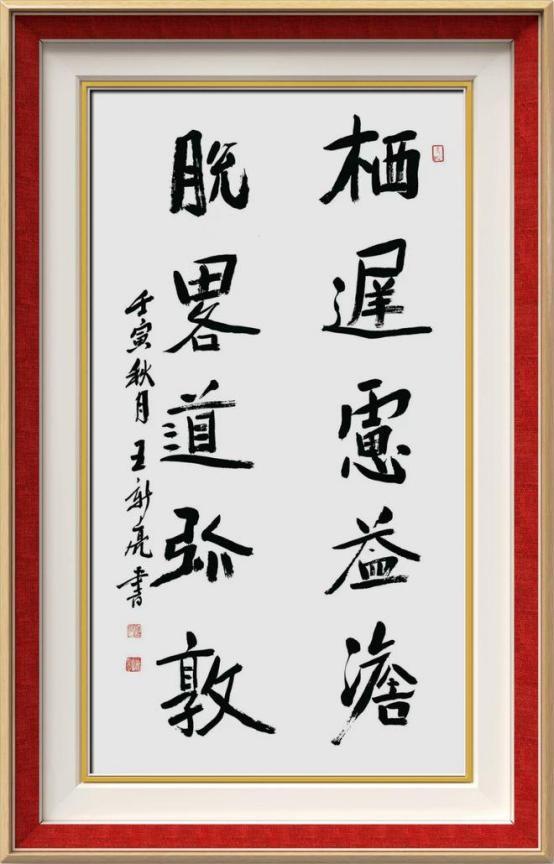 栖遲慮益澹
脱畧道弥敦
壬寅秋月王新亮書